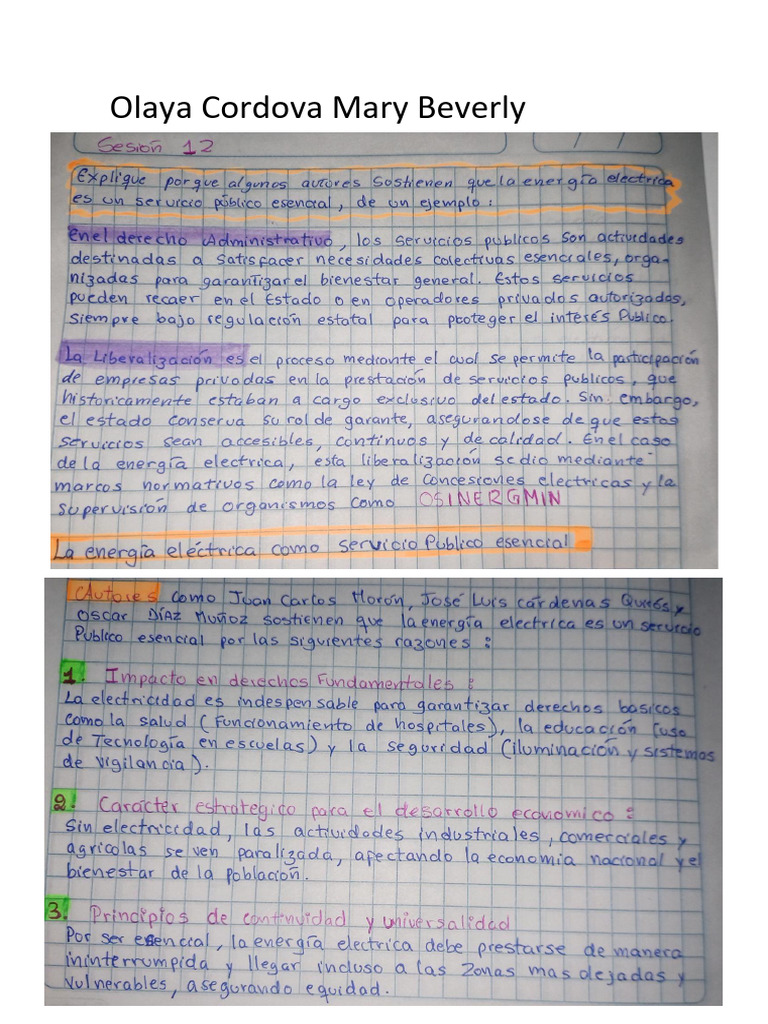 Olaya Cordova Mary Beverly
Sesión 12
Explique porque algunos autores sostienen que la energía electrica
es un servicio público esencial, de un ejemplo:
En el derecho Administrativo, los servicios publicos son actividades
destinadas a satisfacer necesidades colectivas esenciales, orga-
nizadas para garantizar el bienestar general. Estos servicios
pueden recaer en el Estado o en operadores privados autorizados,
siempre bajo regulación estatal para poteger el interés Publico.
La Liberalización es el proceso mediante el cual se permite la participación
de empresas privadas en la prestación de servicios publicos, que
historicamente estaban a cargo exclusivo del estado. Sin embargo,
el estado conserva su rol de garante, asegurandose de que estos
servicios sean accesibles, continuos y de calidad. En el caso
de la energía electrica, esta liberalización se dio mediante
marcos normativos como la ley de concesiones electricas y la
supervisión de organismos como OSINERGMIN
La energía eléctrica como servicio Público esencial
Autores como Juan Carlos Morón, José Luis cárdenas Quirós y
Oscar Díaz Muñoz sostienen que la energía electrica es un servicio
Publico esencial por las siguientes razones:
1. Impacto en derechos Fundamentales:
La electricidad es indespensable para garantizar derechos basicos
como la salud (funcionamiento de hospitales), la educación (uso
de Tecnología en escuelas) y la seguridad (iluminación y sistemas
de vigilancia).
2. Carácter estrategico para el desarrollo economico:
Sin electricidad, las actividades industriales, comerciales y
agricolas se ven paralizada, afectando la economia nacional y el
bienestar de la población.
3. Principios de continuidad y universalidad
Por ser esencial, la energía electrica debe prestarse de manera
ininterrumpida y llegar incluso a las zonas mas alejadas y
vulnerables, asegurando equidad.